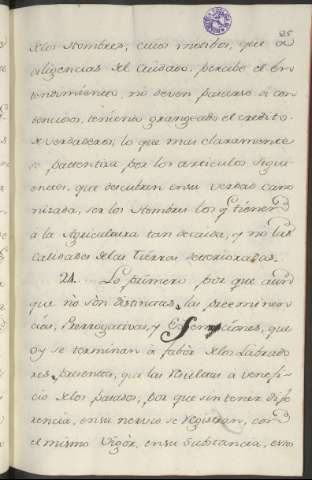 25
delos Hombres; cuios motibos, que à
diligencias del Cuidado percibe el En-
tendimiento, no deven pararse ó con-
tenidos, teniendo grangeado el credito
verdaderos; lo que mas claramente
se patentiza por los articulos siguie-
entes, que descubren en su verdad cano-
nizada, ser los Hombres los q tienen
à la Agricultura tan decaida, y no las
calidades delas Tierras deterioradas.
21. Lo primero por que aun
que no sòn distinctas, las preeminen-
cias, Prerrogativas, y Exempciones, que
oy se terminan à fabor delos Labrado-
res, parientes, que las Vuelcas a venefi-
cio delos pasados; por que sin tener dife-
rencia, en su nervio se registran, con
el mismo Vigòr, en su Substancia, esto